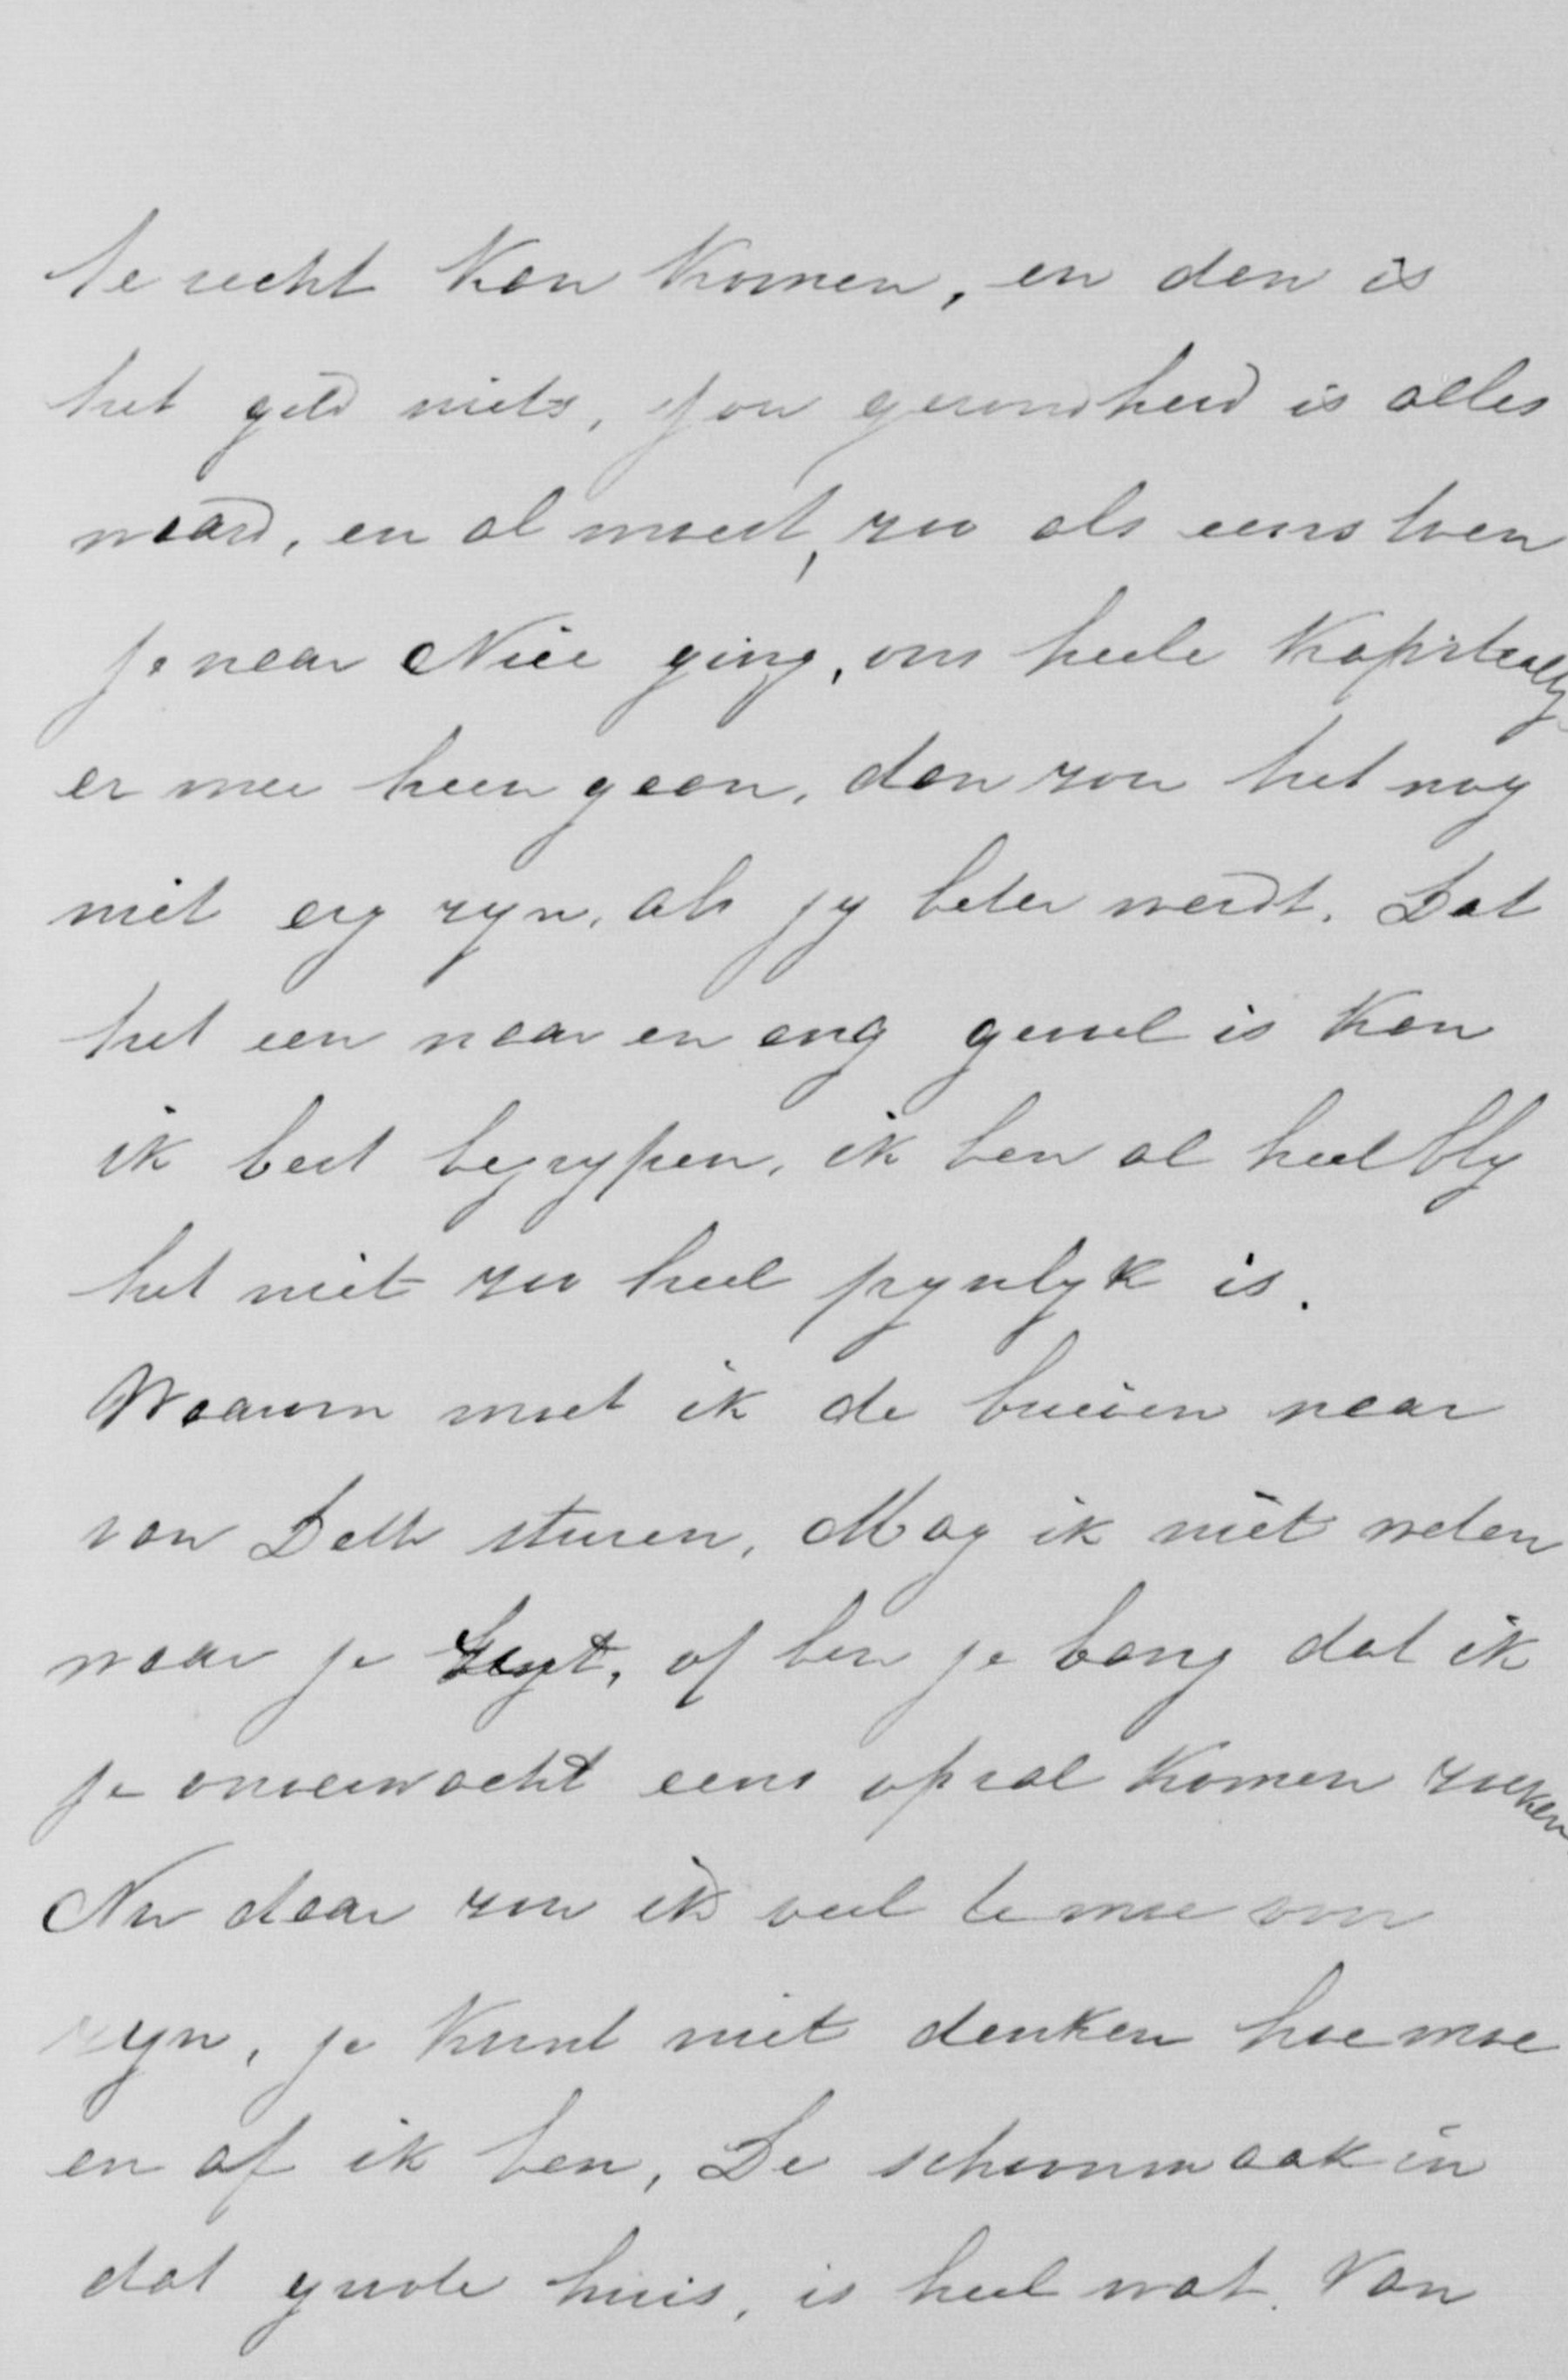 te recht kan komen, en dan is
het geld niets, jou gezondheid is alles
waard, en al moest, zoo als eens toen
je naar Nice ging, ons heele kapitaaltje
er mee heen gaan, dan zou het nog
niet erg zyn, als jy beter werdt. Dat
het een naar en eng geval is kan
ik best begrypen, ik ben al heel bly
het niet zoo heel pynlyk is.
Waarom moet ik de brieven naar
van Deth sturen, Mag ik niet weten
waar je ligt, of ben je bang dat ik
je onverwacht eens op zal komen zoeken
Nu daar zou ik veel te moe voor
zyn, je kunt niet denken hoe moe
en af ik ben, De schoonmaak in
dat groote huis, is heel wat. Van